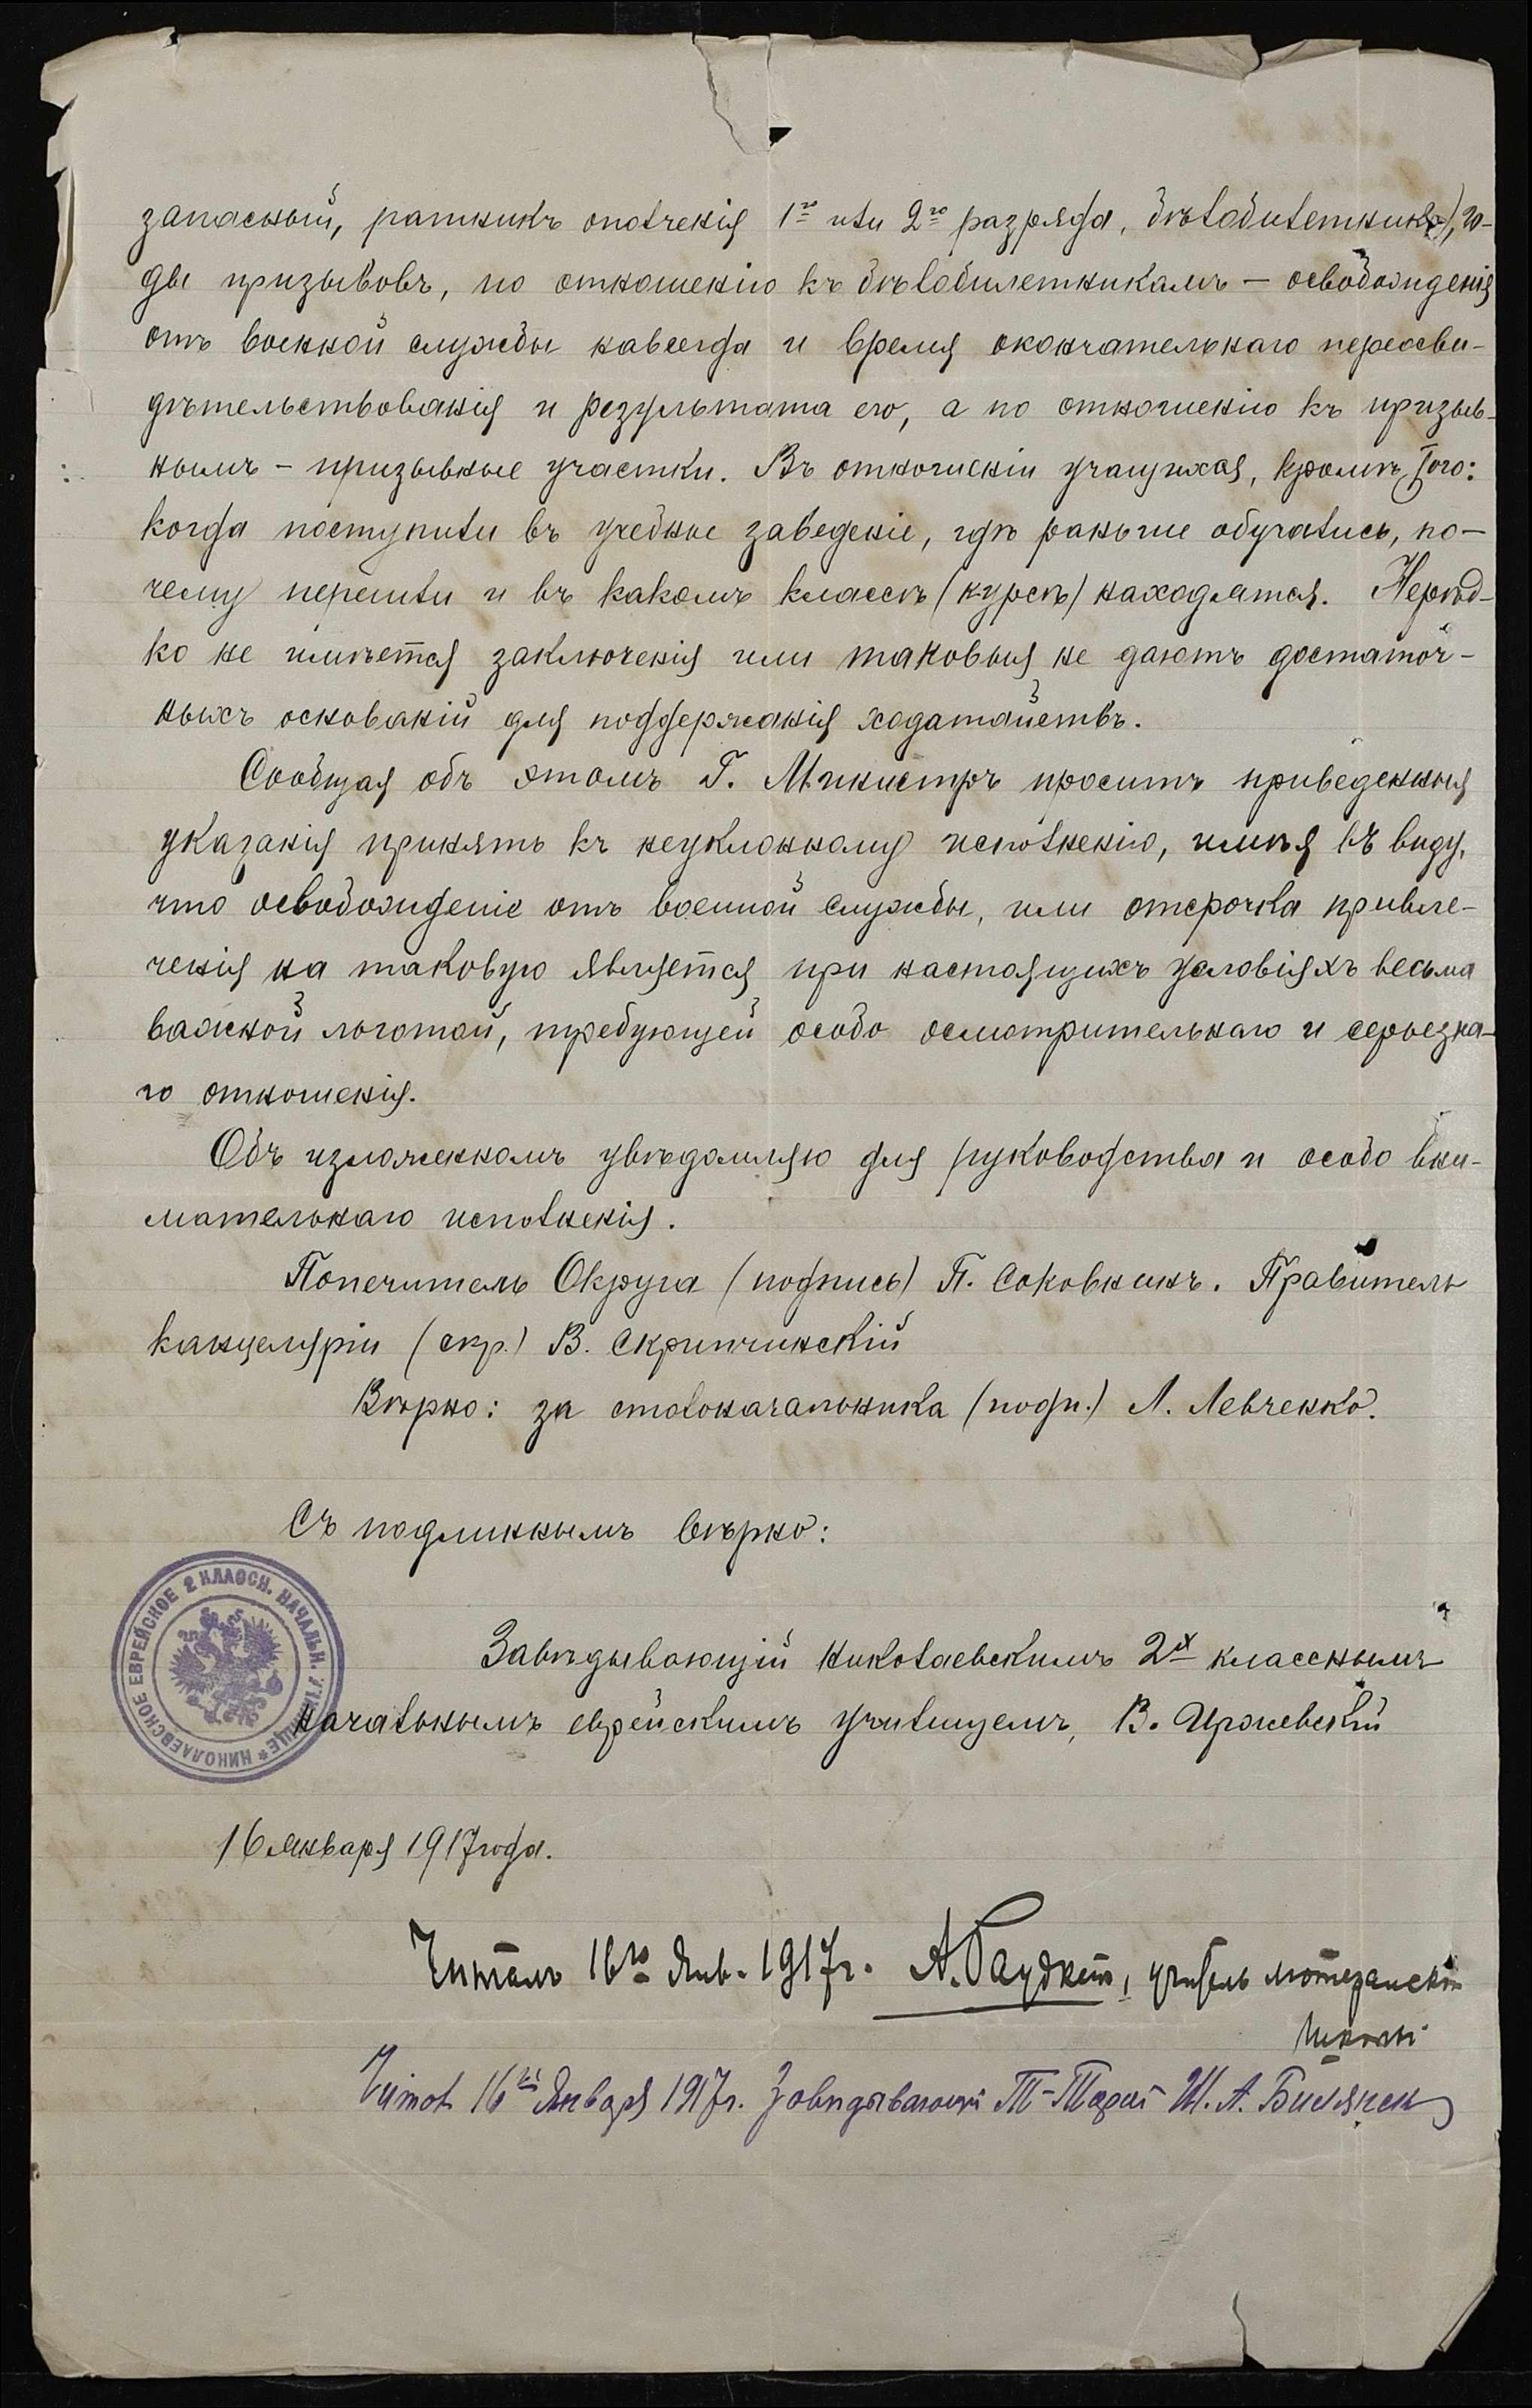 запасный, ратникъ ополченія 1го или 2го разряда, бѣлобилетникъ), го-
ды призывовъ, по отношенію къ бѣлобилетникамъ — освобожденія
отъ военной службы навсегда и время окончательнаго переосви-
дѣтельствованія и результата его, а по отношенію къ призыв-
нымъ - призывные участки. Въ отношеніи учащихся, кромѣ того:
когда поступили въ учебное заведеніе, гдѣ раньше обучались, по-
чему перешли и въ какомъ классѣ (курсѣ) находятся. Нерѣд-
ко не имѣется заключенія или таковыя не даютъ достаточ-
ныхъ основаній для поддержанія ходатайствъ.
Сообщая объ этомъ Г. Министръ проситъ приведенныя
указанія принять къ неуклонному исполненію, имѣя въ виду,
что освобожденіе отъ военной службы, или отсрочка привле-
ченія на таковую является при настоящихъ условіяхъ весьма
важной льготой, требующей особо осмотрительнаго и серьезна-
го отношенія.
Объ изложенномъ увѣдомляю для руководства и особо вни-
мательнаго исполненія.
Попечитель Округа (подпись) П. Соковнинъ. Правитель
канцеляріи (скр.) В. Скрипчинскій
Вѣрно: за столоначальника (подп.) Л. Левченко.
Съ подлиннымъ вѣрно:
НИКОЛАЕВСКОЕ ЕВРЕЙСКОЕ 2 КЛАССН. НАЧАЛЬН. УЧИЛИЩЕ *
Завѣдывающій Николаевскимъ 2х класснымъ
начальнымъ еврейскимъ училищемъ, В. Иржевскій
16 января 1917 года.
Читалъ 16го Янв. 1917г. А. учитель
школы
Читал 16го Января 1917г. Завидывающи Т-Тарай Ш. А.